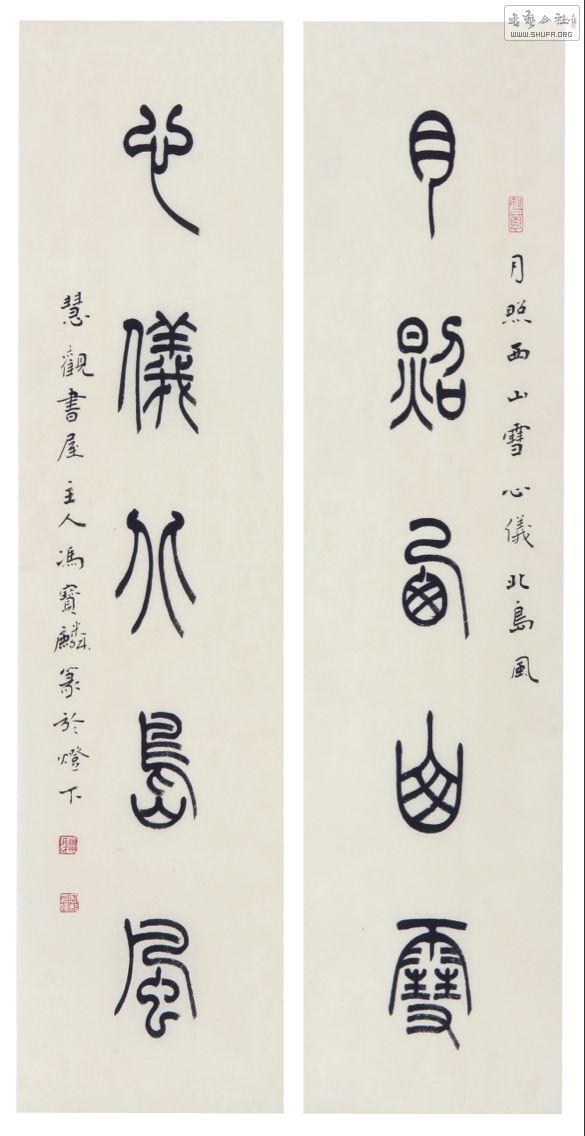 書藝公社
WWW.SHUFA.ORG
月照西山雪心儀北島風
月照西山雪
心儀北島風
慧觀書屋主人馮寶麟篆於燈下